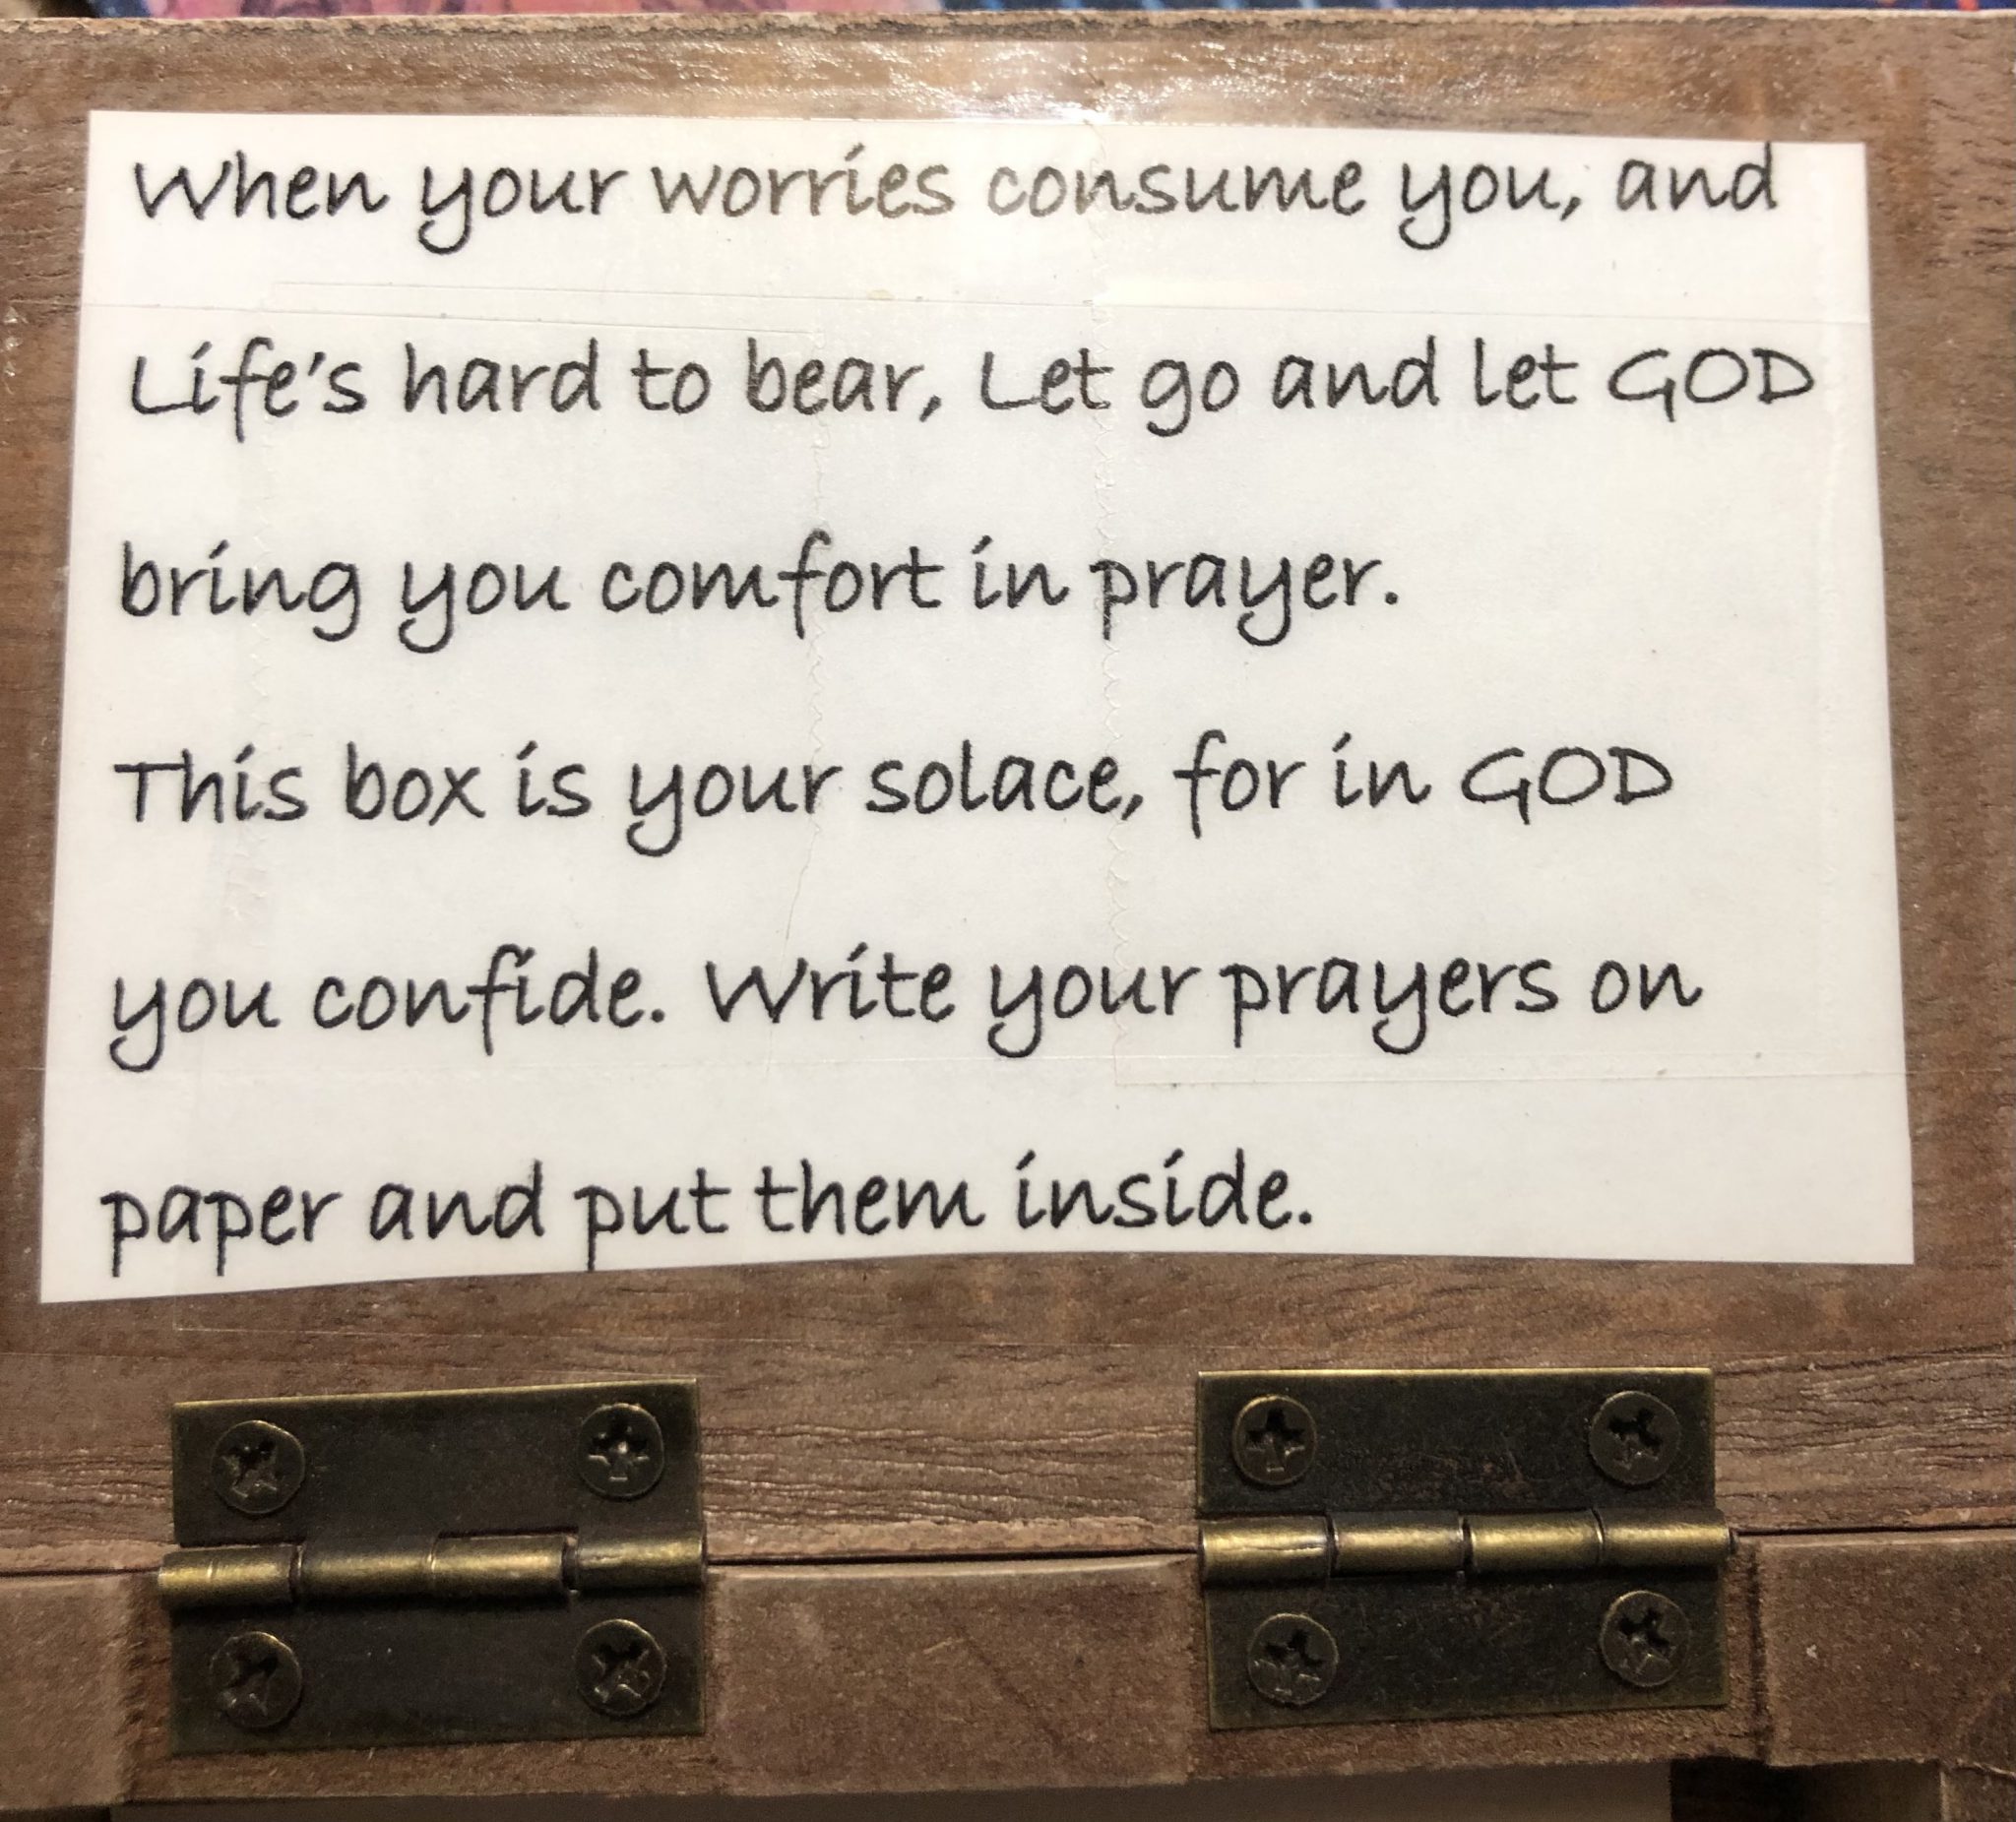 When your worries consume you, and
Life's hard to bear, Let go and let GOD
bring you comfort in prayer.
This box is your solace, for in GOD
you confide. Write your prayers on
paper and put them inside.